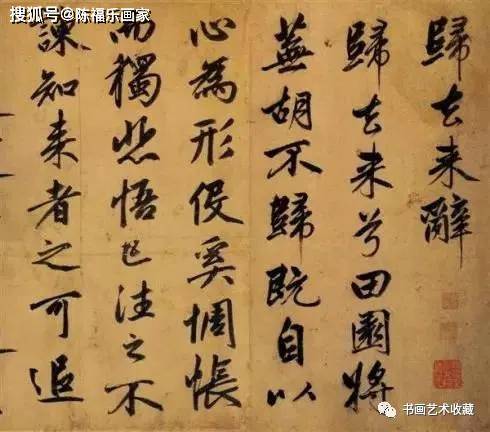 搜狐号@陈福乐画家
歸去来辭
歸去来兮田園將
蕪胡不歸既自以
心為形役奚惆悵
而獨悲悟已往之不
諫知来者之可追
书画艺术收藏